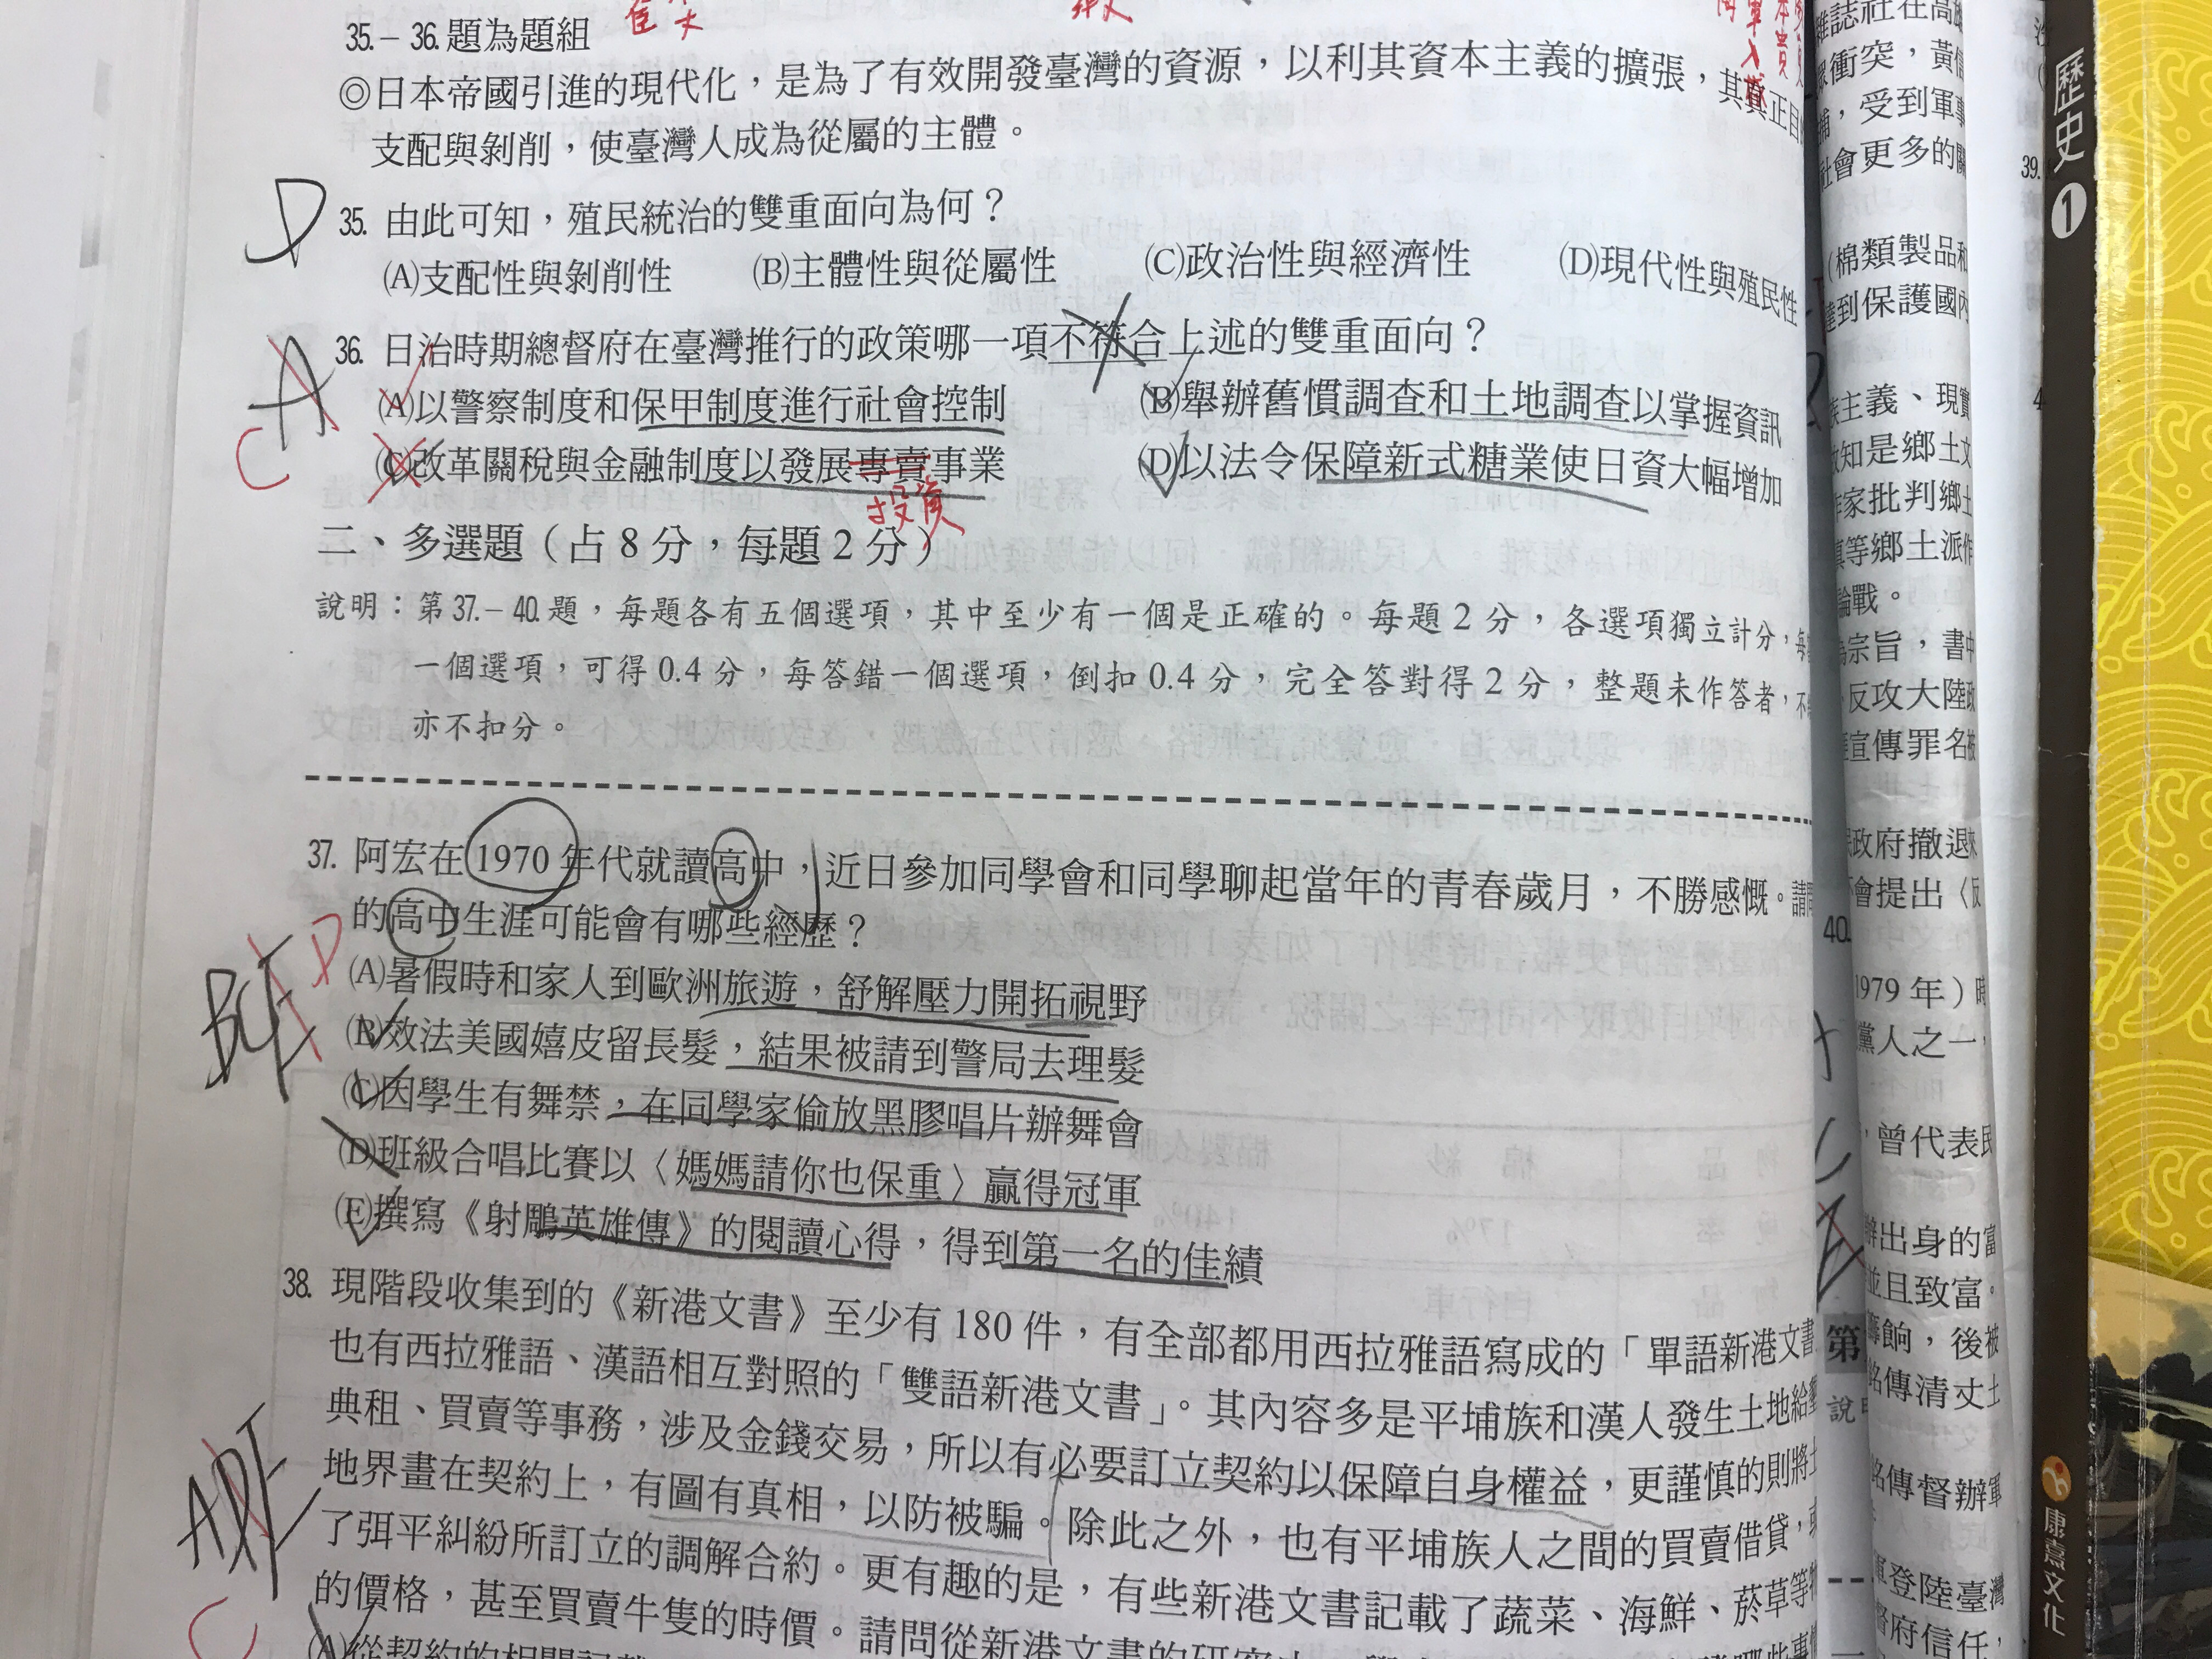 35.－36.題為題組
◎日本帝國引進的現代化，是為了有效開發臺灣的資源，以利其資本主義的擴張，其真正目
支配與剝削，使臺灣人成為從屬的主體。
D
35. 由此可知，殖民統治的雙重面向為何？
(A)支配性與剝削性 (B)主體性與從屬性 (C)政治性與經濟性 (D)現代性與殖民性
A
C
36. 日治時期總督府在臺灣推行的政策哪一項不符合上述的雙重面向？
(A)以警察制度和保甲制度進行社會控制 (B)舉辦舊慣調查和土地調查以掌握資訊
(C)改革關稅與金融制度以發展專賣事業 (D)以法令保障新式糖業使日資大幅增加
投資
二、多選題（占8分，每題2分）
說明：第37.－40.題，每題各有五個選項，其中至少有一個是正確的。每題2分，各選項獨立計分，每
一個選項，可得0.4分，每答錯一個選項，倒扣0.4分，完全答對得2分，整題未作答者，不
亦不扣分。
37. 阿宏在1970年代就讀高中，近日參加同學會和同學聊起當年的青春歲月，不勝感慨。請問
的高中生涯可能會有哪些經歷？
BCE
D
(A)暑假時和家人到歐洲旅遊，舒解壓力開拓視野
(B)效法美國嬉皮留長髮，結果被請到警局去理髮
(C)因學生有舞禁，在同學家偷放黑膠唱片辦舞會
(D)班級合唱比賽以〈媽媽請你也保重〉贏得冠軍
(E)撰寫《射鵰英雄傳》的閱讀心得，得到第一名的佳績
38. 現階段收集到的《新港文書》至少有180件，有全部都用西拉雅語寫成的「單語新港文書
也有西拉雅語、漢語相互對照的「雙語新港文書」。其內容多是平埔族和漢人發生土地給
典租、買賣等事務，涉及金錢交易，所以有必要訂立契約以保障自身權益，更謹慎的則將土
地界畫在契約上，有圖有真相，以防被騙。除此之外，也有平埔族人之間的買賣借貸，或
了弭平糾紛所訂立的調解合約。更有趣的是，有些新港文書記載了蔬菜、海鮮、菸草等物
的價格，甚至買賣牛隻的時價。請問從新港文書的研究中，
ADE
C
(A)從契約的相關記載
雜誌社在高雄
衝突，黃信
捕，受到軍事
社會更多的關
39.
(棉類製品和
達到保護國內
族主義、現實
故知是鄉土文
作家批判鄉土
真等鄉土派作
論戰。
為宗旨，書中
，反攻大陸政
宣傳罪名被
民政府撤退來
會提出〈反
40.
1979年）時
黨人之一，
，曾代表民
辦出身的富
並且致富。
籌餉，後被
銘傳清丈土
第
說
銘傳督辦軍
軍登陸臺灣
督府信任，
歷史1
康熹文化